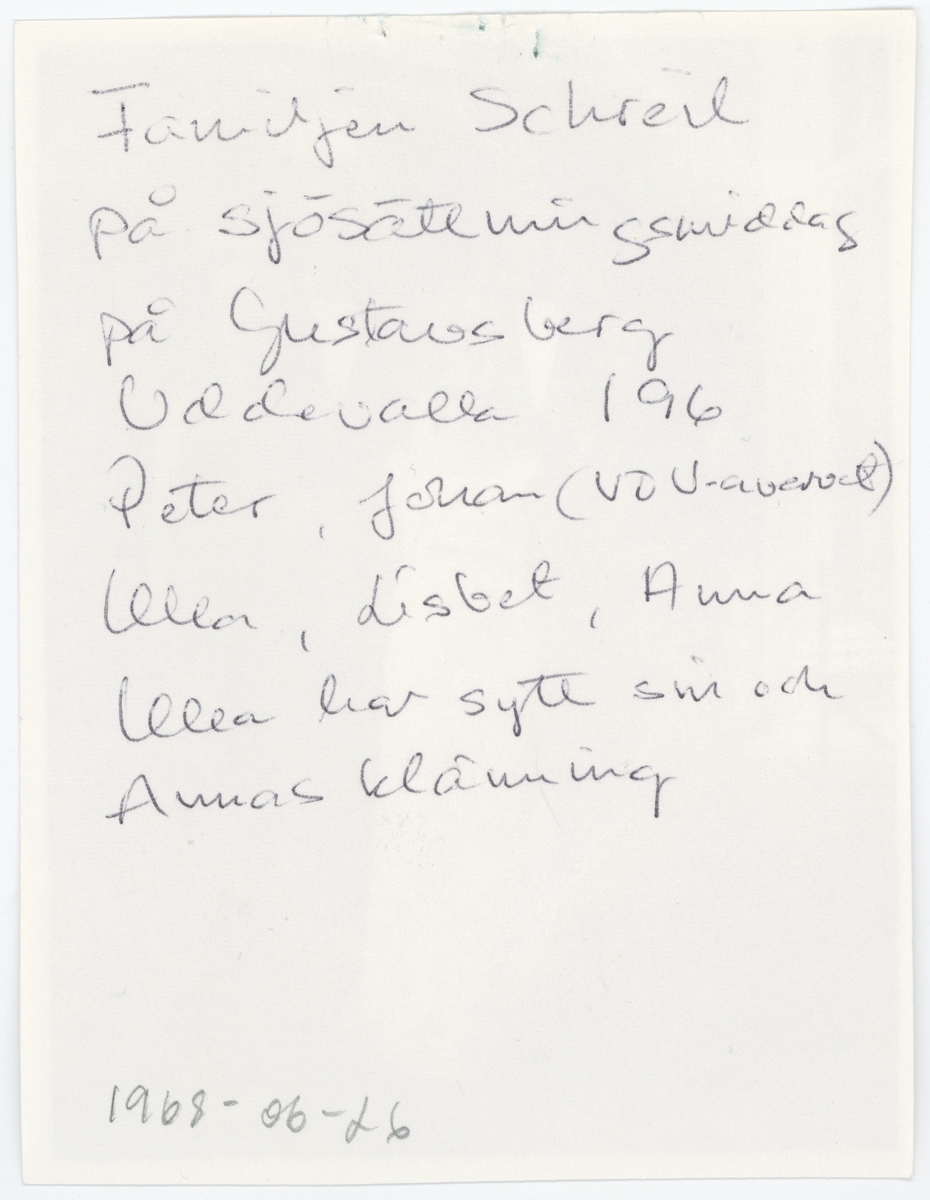 Familjen Schreil
på sjösättningsmiddag
på Gustavsberg
Uddevalla 196
Peter, Johan
Ulla, Lisbet, Anna
Ulla har sytt sin och
Annas klänning
1968-06-26